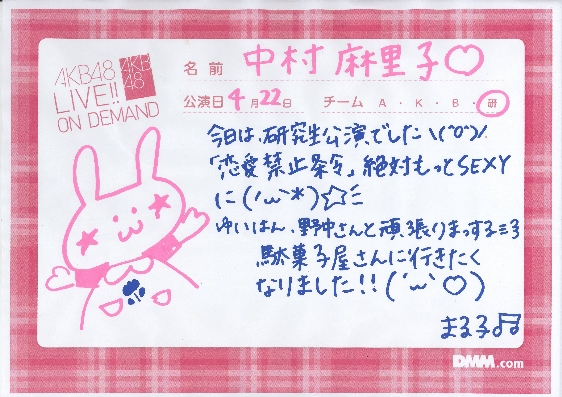 AKB48
LIVE!!
ON DEMAND
AKB
48
名前 中村麻里子♡
公演日 4月22日 チーム A・K・B・研
今日は、研究生公演でした\(^o^)/
「恋愛禁止条令」絶対もっとSEXY
に(/ω`*)☆ミ
ゆいはん、野中さんと頑張りまっする三3
駄菓子屋さんに行きたく
なりました!!(´ω`♡)
まる子♫
DMM.com